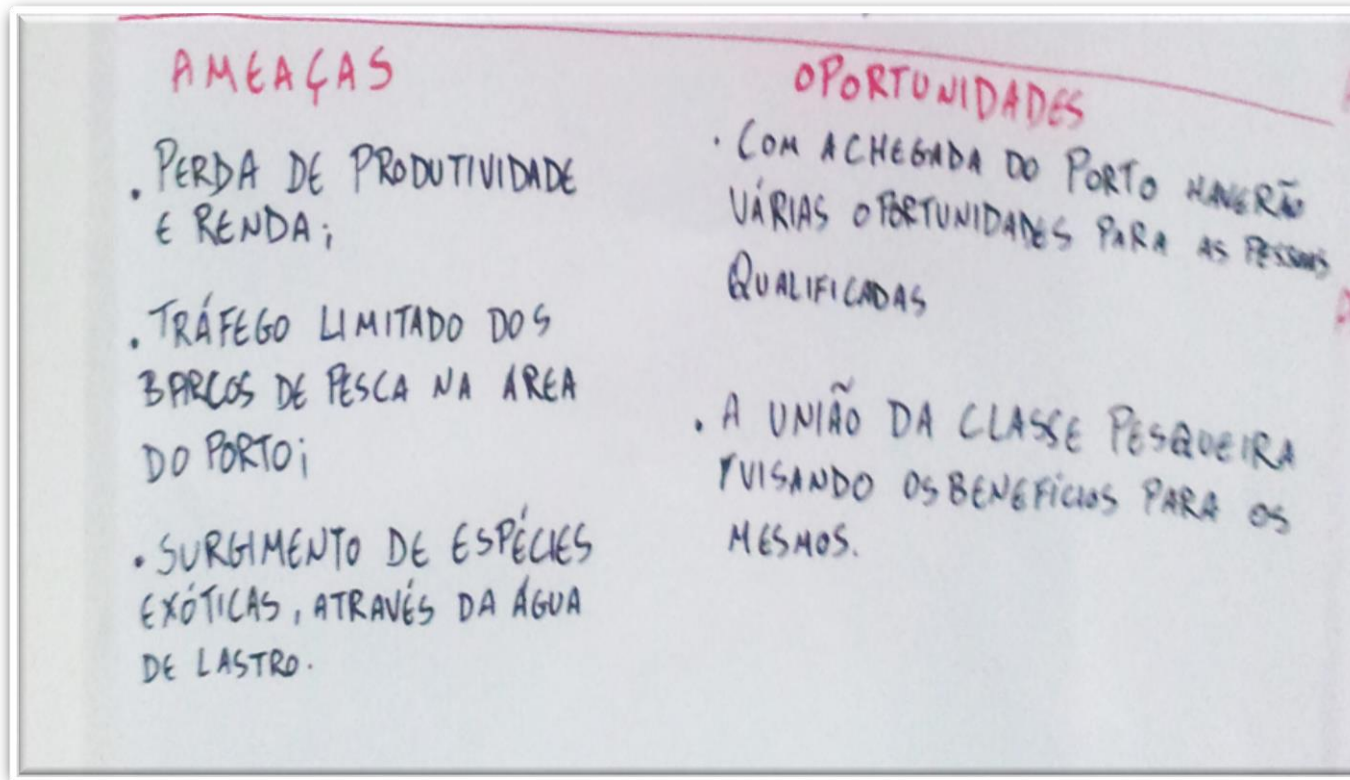 AMEAÇAS
. PERDA DE PRODUTIVIDADE
E RENDA;
. TRÁFEGO LIMITADO DOS
BARCOS DE PESCA NA ÁREA
DO PORTO;
. SURGIMENTO DE ESPÉCIES
EXÓTICAS, ATRAVÉS DA ÁGUA
DE LASTRO.
OPORTUNIDADES
. COM A CHEGADA DO PORTO HAVERÃO
VÁRIAS OPORTUNIDADES PARA AS PESSOAS
QUALIFICADAS
. A UNIÃO DA CLASSE PESQUEIRA
VISANDO OS BENEFÍCIOS PARA OS
MESMOS.